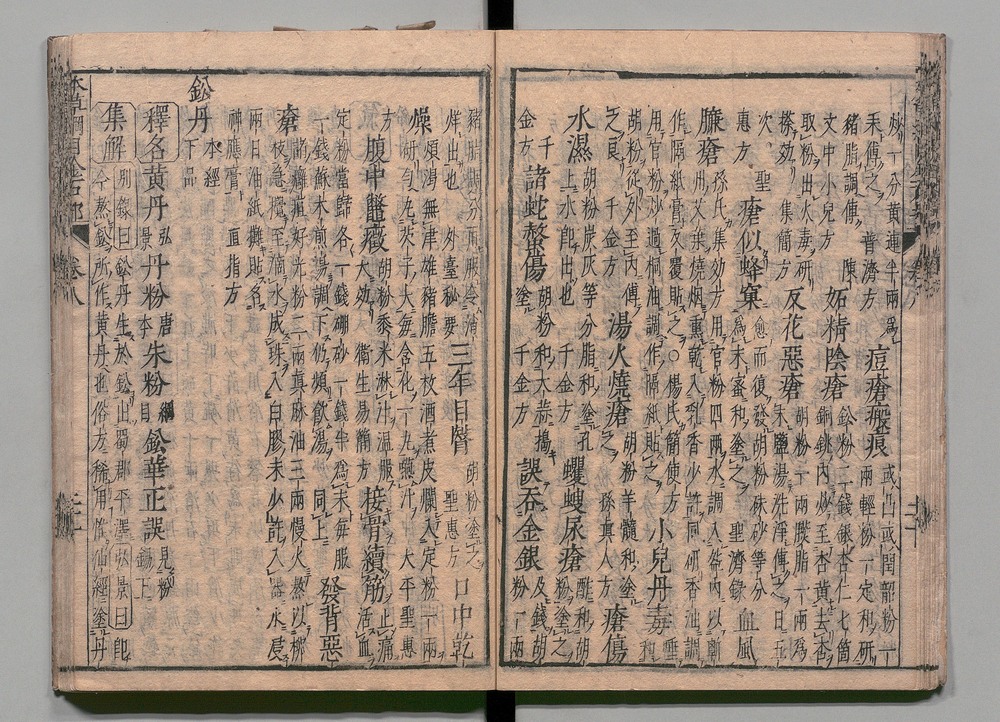 炒一分黃連半兩爲
末傅之 普濟方 痘瘡瘢痕 或凸或凹韶粉一
兩輕粉一定和研
豬脂調傅 陳
文中小兒方 妬精陰瘡 鉛粉二錢銀杏仁七箇
銅銚內炒至杏黃去杏
取粉出火毒研
搽効 集簡方 反花惡瘡 胡粉一兩臙脂一兩爲
末鹽湯洗淨傅之日五
次 聖
惠方 瘡似蜂窠 愈而復發胡粉硃砂等分
爲末蜜和塗之 聖濟錄 血風
臁瘡 孫氏集効方用官粉四兩水調入盌內以蘄
州艾葉燒烟熏乾入乳香少許同研香油調
作隔紙膏反覆貼之○楊氏簡便方
用官粉炒過桐油調作隔紙貼之 小兒丹毒 唾和
胡粉從外至內傅
之良 千金方 湯火燒瘡 胡粉羊髓和塗
之 孫真人方 瘡傷
水濕 胡粉炭灰等分脂和塗孔
上水即出也 千金方 蠼螋尿瘡 酢和胡
粉塗之
千
金方 諸蛇螫傷 胡粉和大蒜搗
塗 千金方 誤吞金銀 及錢胡
粉一兩
豬脂調分再服令消
烊出也 外臺秘要 三年目瞖 胡粉塗之
聖惠方 口中乾
燥 煩渴無津雄豬膽五枚酒煮皮爛入定粉一兩
研勻丸芡子大每含化一丸嚥汁 太平聖惠
方 腹中鼈癥 胡粉黍米淋汁溫服
大効 衛生易簡方 接骨續筋 止痛
活血
定粉當歸各一錢硼砂一錢半爲末每服
一錢蘇木煎湯調下仍頻飲湯 同上 發背惡
瘡 諸癰疽好光粉二兩真麻油三兩慢火熬以柳
枝急攪至滴水成珠入白膠末少許入器水浸
兩日油紙攤貼名
神應膏 直指方
鉛丹 本經
下品
釋名 黃丹 弘景 丹粉 唐本 朱粉 綱目 鉛華 正誤 見粉
錫下
集解 別錄曰鉛丹生於鉛出蜀郡平澤弘景曰即
今熬鉛所作黃丹也俗方稀用惟仙經塗丹